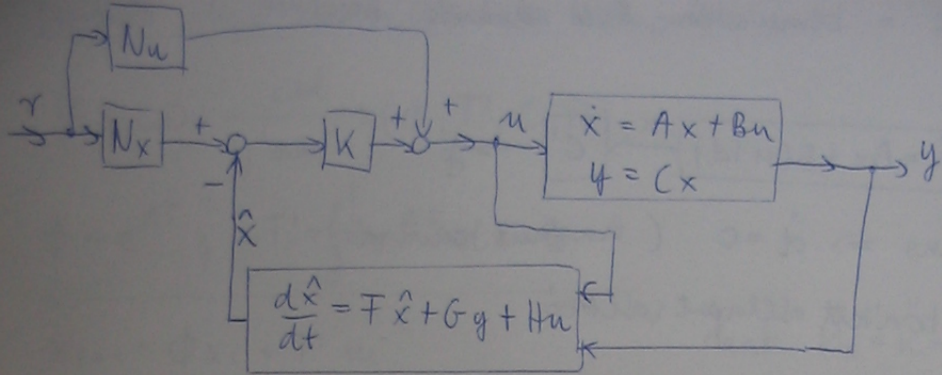 Nu
r
Nx
+
−
K
+
+
u
ẋ = Ax + Bu
y = Cx
y
x̂
dx̂/dt = Fx̂ + Gy + Hu